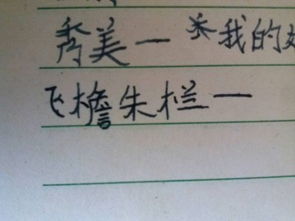 秀美一 我的
飞檐朱栏一